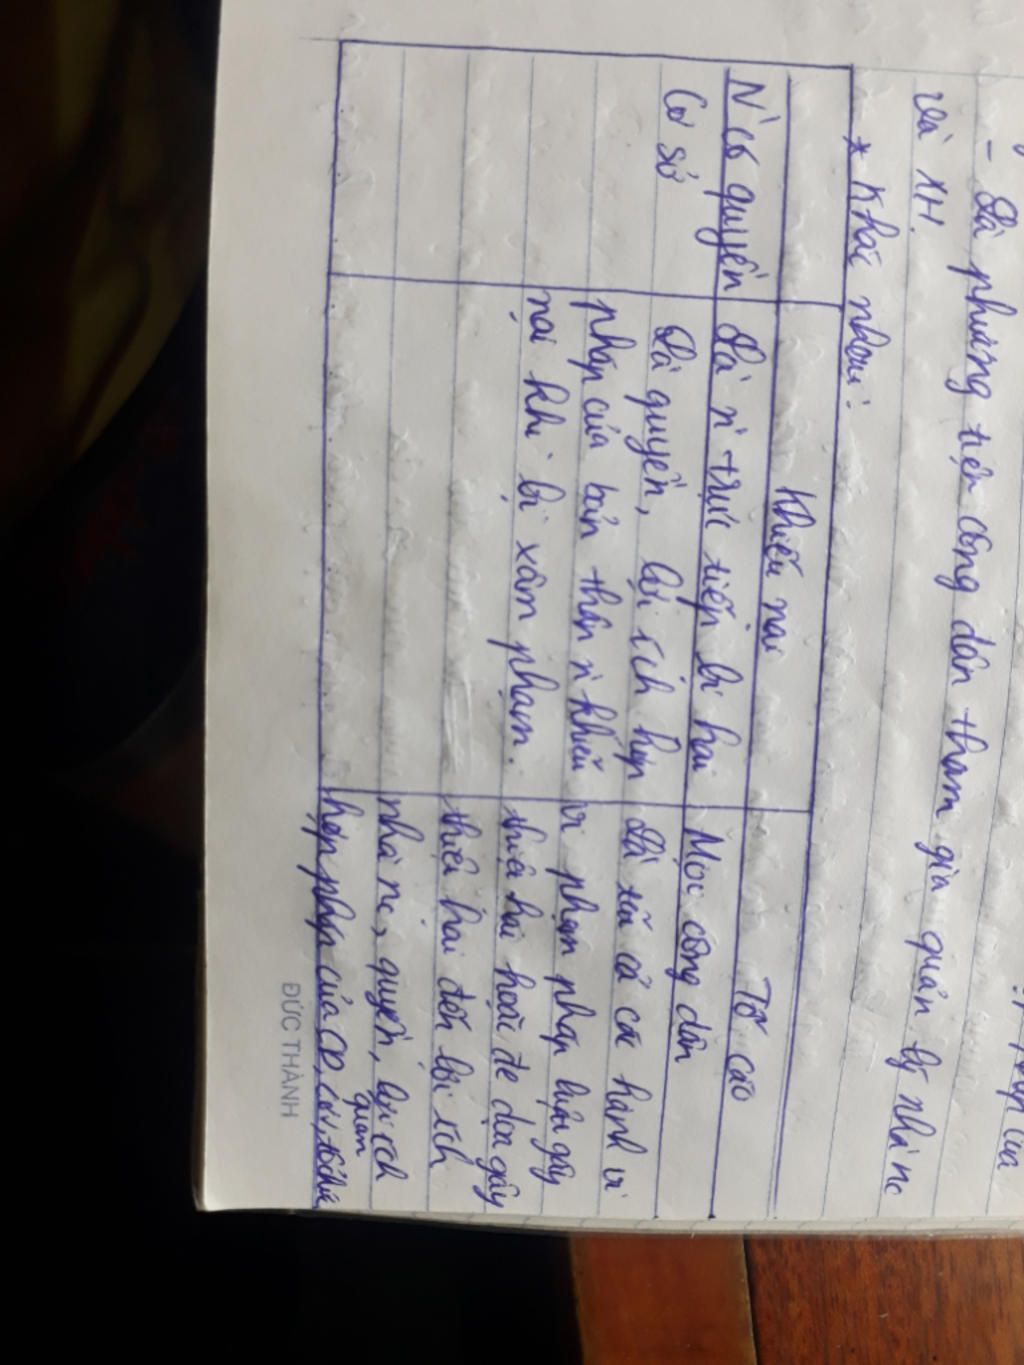 - Là phương tiện công dân tham gia quản lý nhà nc
và XH.
* Khác nhau:
Khiếu nại Tố cáo
N' có quyền Là n' trực tiếp bị hại Mọi công dân
Cơ sở Là quyền, lợi ích hợp Là tất cả các hành vi
pháp của bản thân n' khiếu vi phạm pháp luật gây
nại khi bị xâm phạm. thiệt hại hoặc đe dọa gây
thiệt hại đến lợi ích
nhà nc, quyền, lợi ích
quan
hợp pháp của CD, cơ, tổ chức
ĐỨC THÀNH